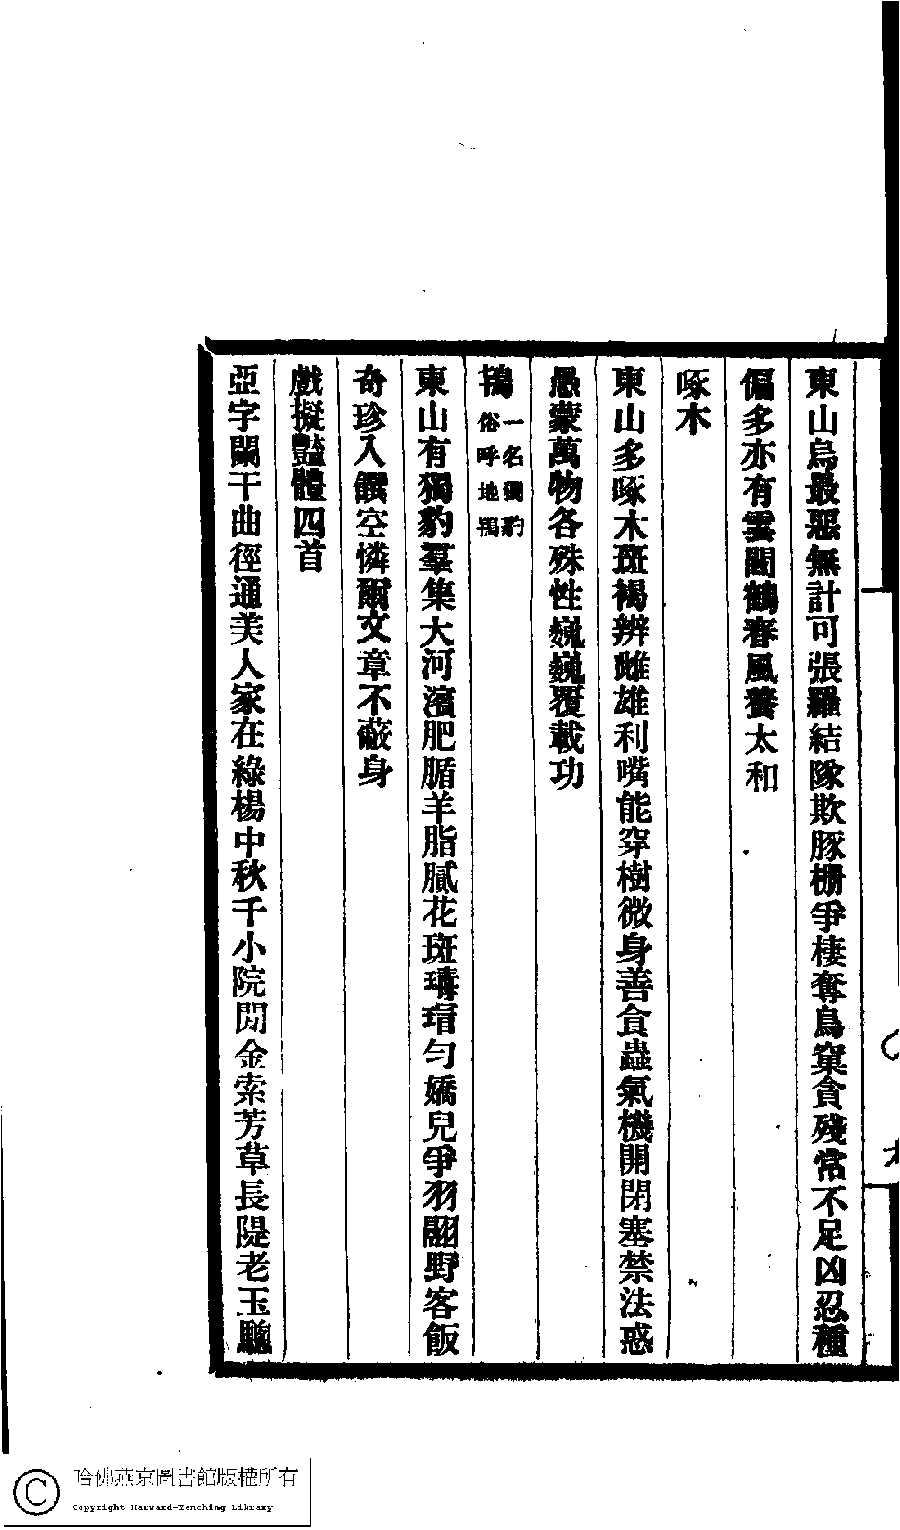 東山烏最惡無計可張羅結隊欺豚柵爭棲奪鳥窠貪殘常不足凶忍種
偏多亦有雲閒鶴春風養太和
啄木
東山多啄木斑褐辨雌雄利嘴能穿樹微身善食蟲氣機開閉塞禁法惑
愚蒙萬物各殊性巍巍覆載功
鴇一名獨豹俗呼地鵏
東山有獨豹羣集大河濱肥腯羊脂膩花斑瑇瑁勻嬌兒爭羽翮野客飯
奇珍入饌空憐爾文章不蔽身
戲擬豔體四首
亞字闌干曲徑通美人家在綠楊中秋千小院閒金索芳草長隄老玉驄
哈佛燕京圖書館版權所有
Copyright Harvard-Yenching Library